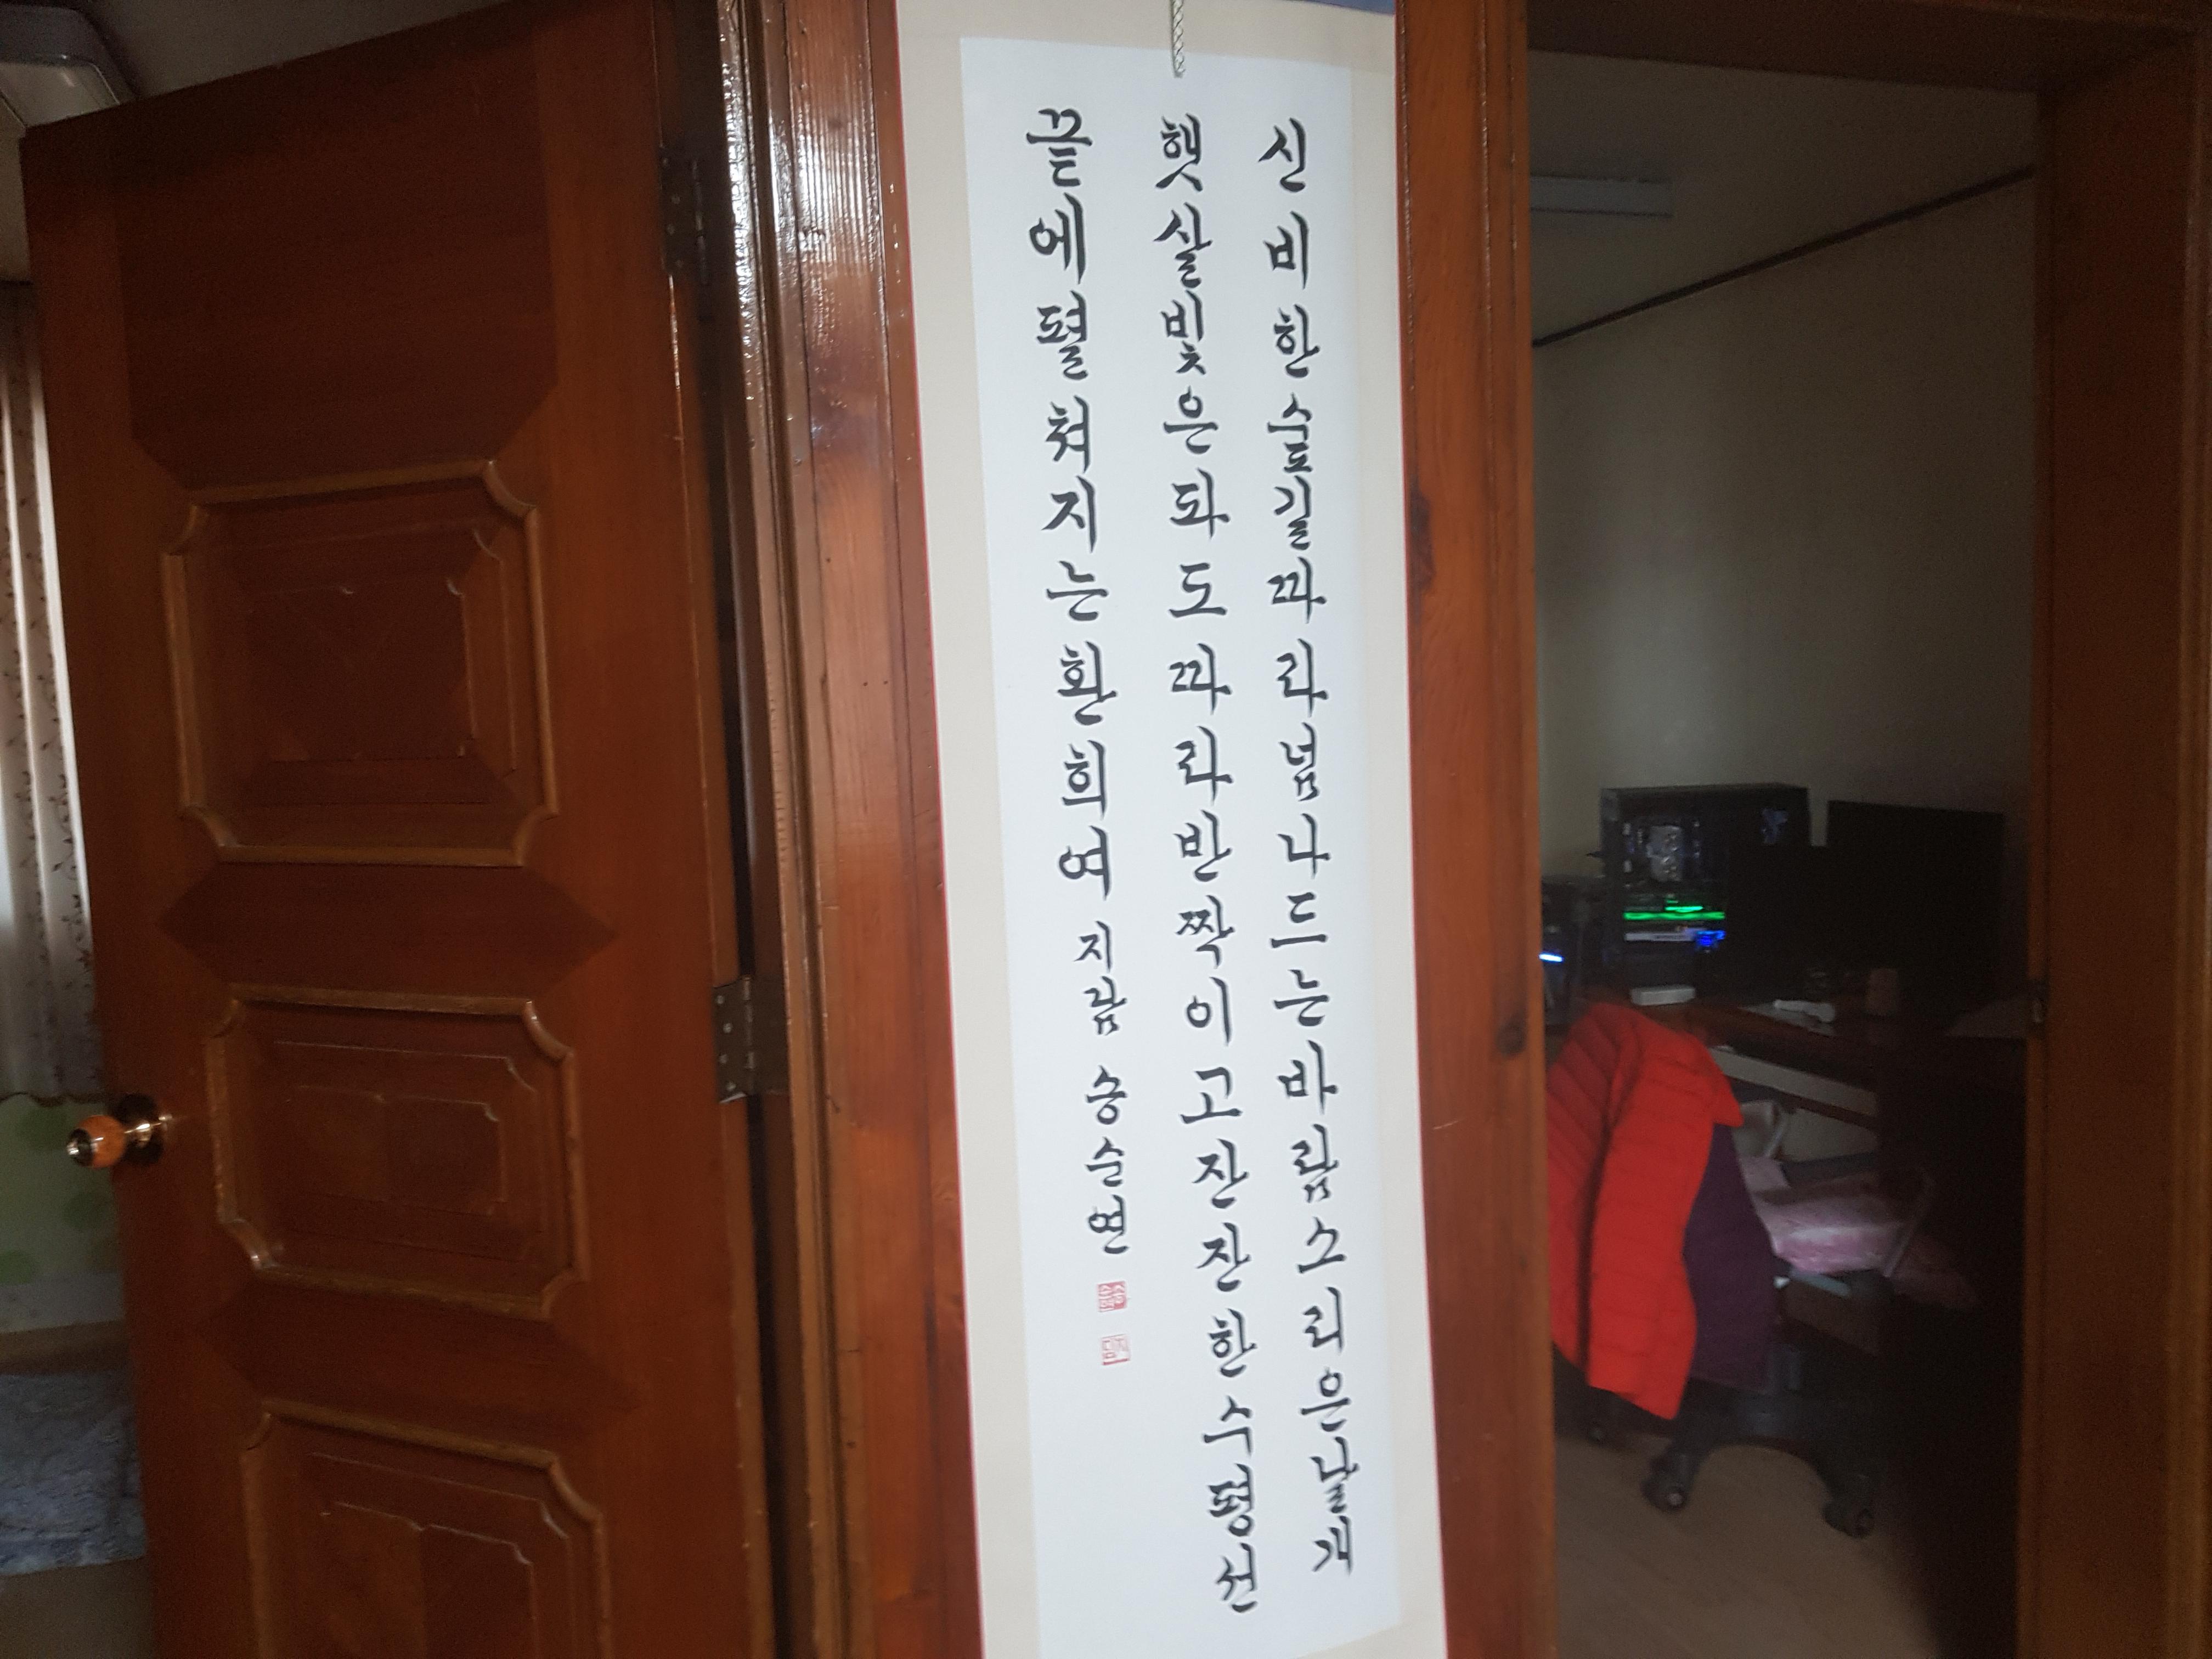 신비한숲길따라넘나드는바람소리은날개
햇살빛은파도따라반짝이고잔잔한수평선
끝에펼쳐지는환희여 지람 송순연